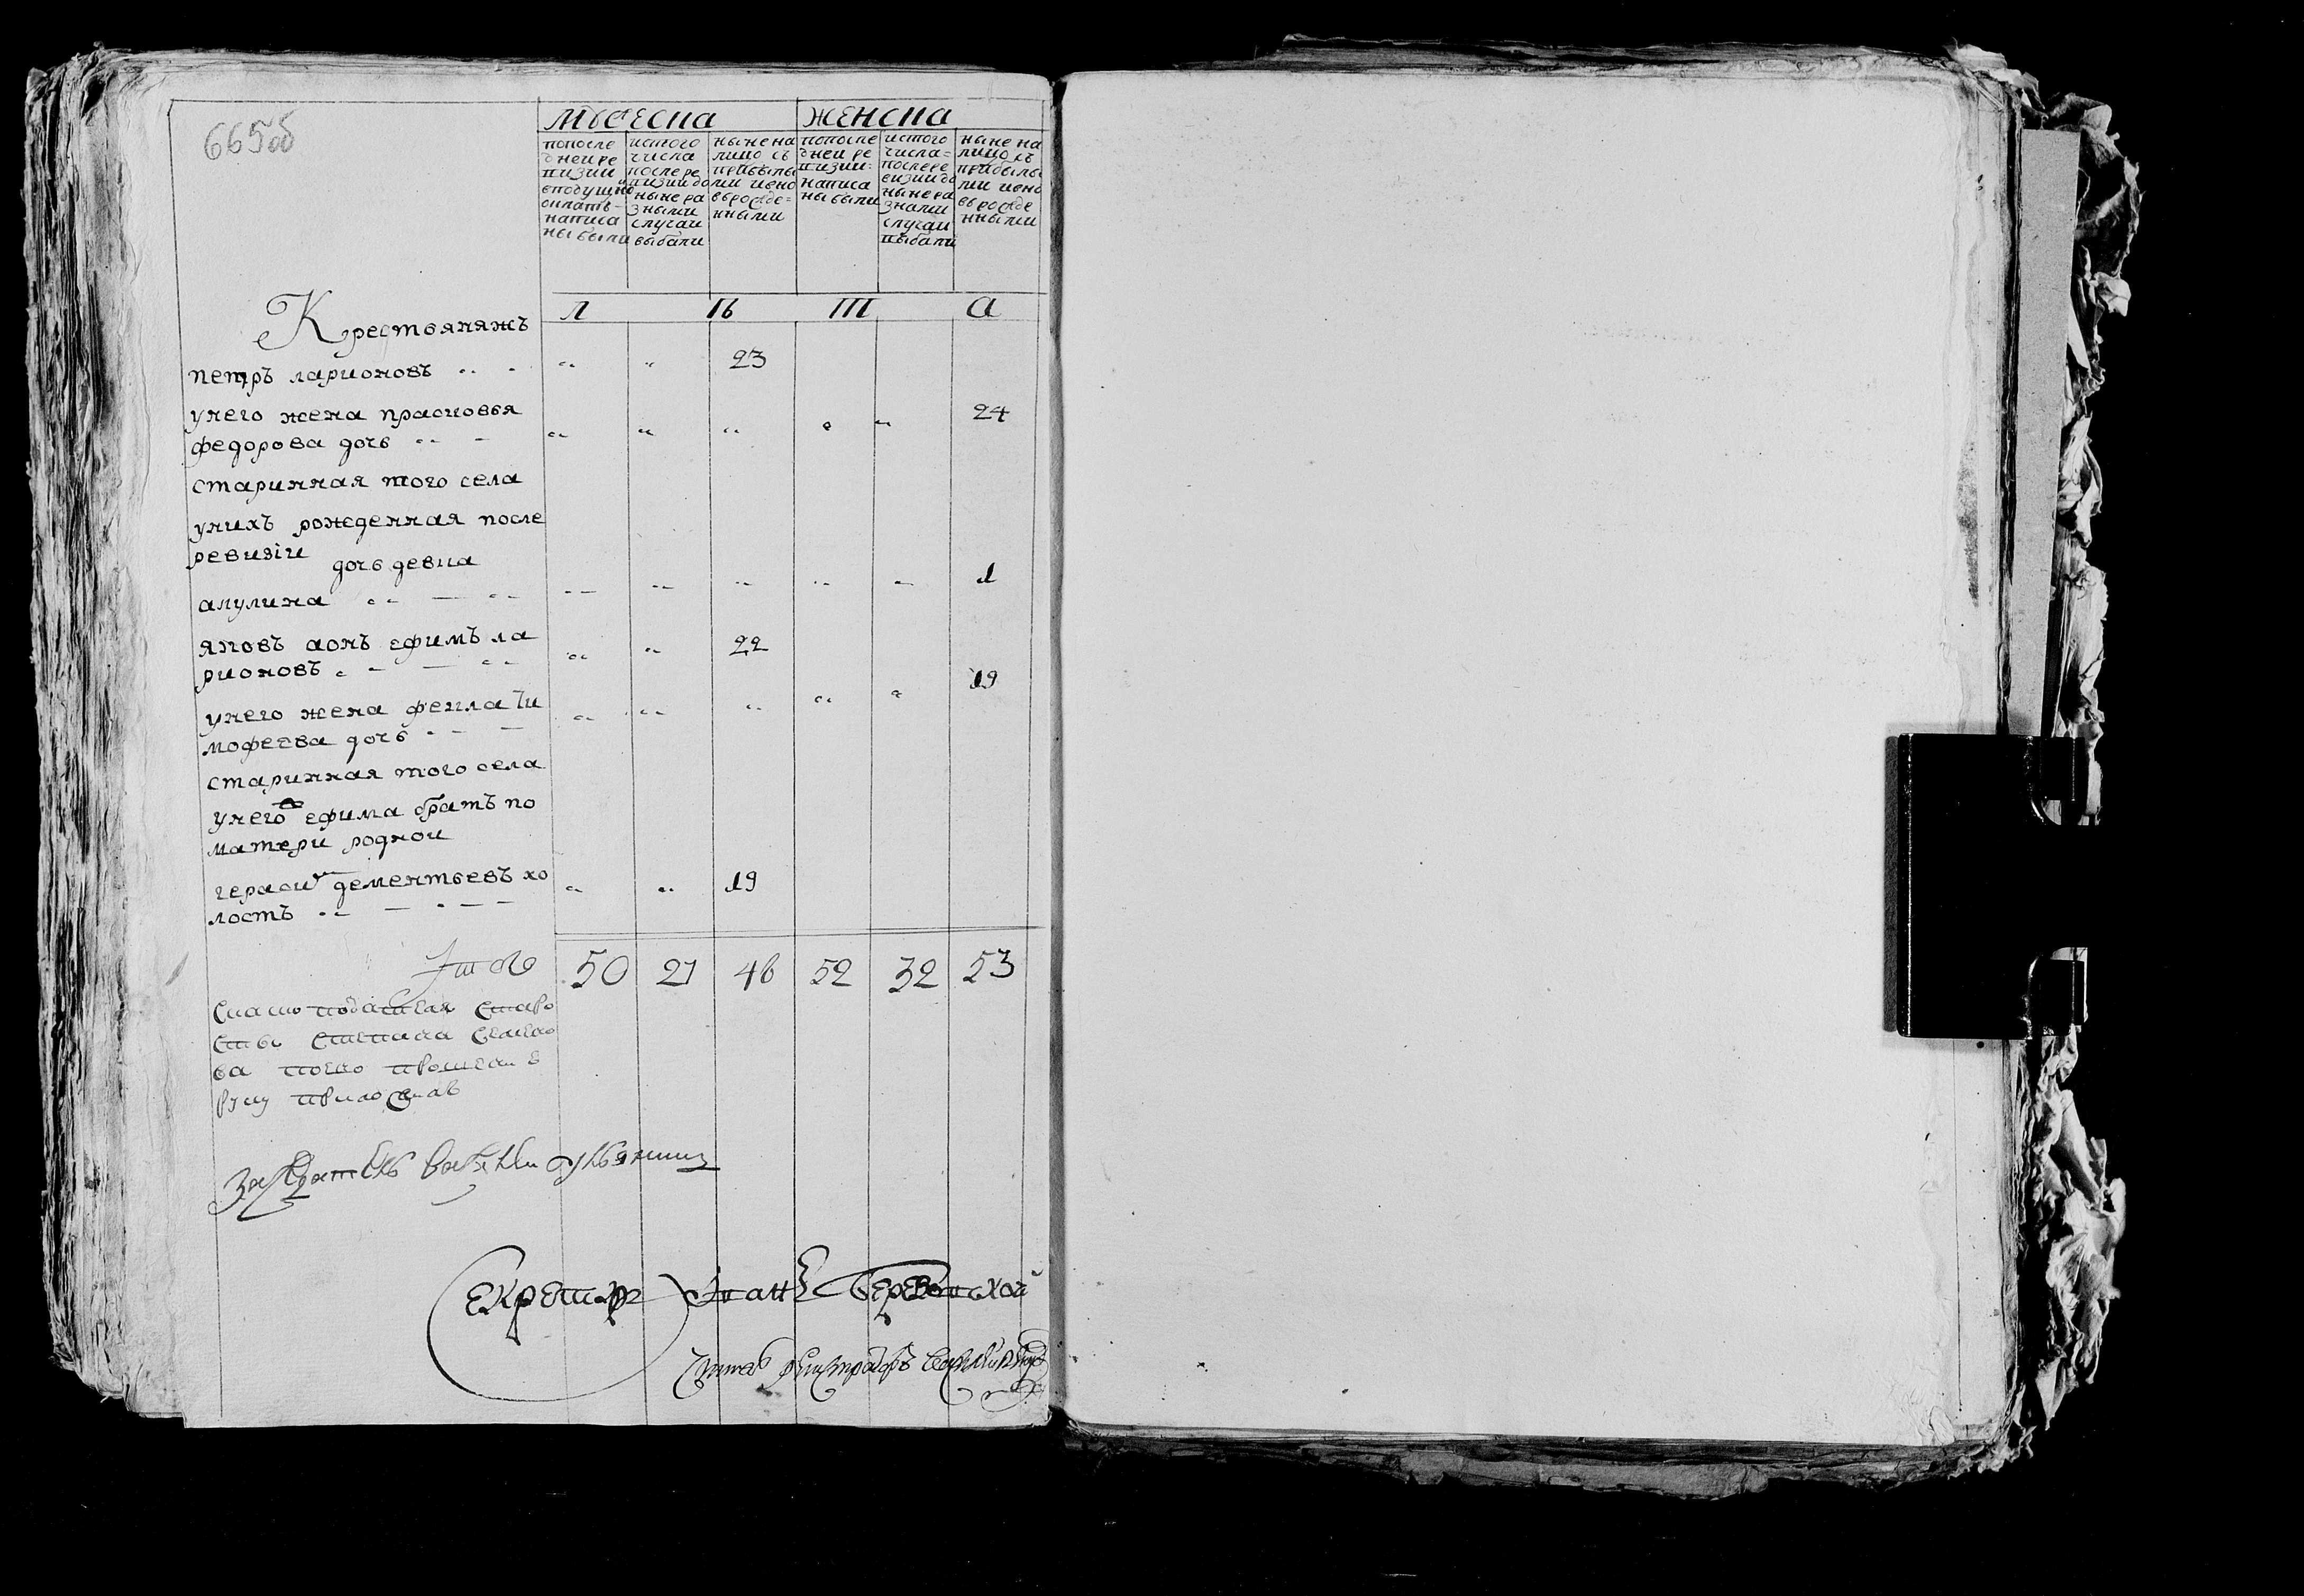 665об
мужеска женска
попослѣ
дней ре
визии
вподушно
окладъ
написа
ны были
истого
числа
после ре
визии до
ныне ра
зными
случаи
выбали
ныне на
лицо съ
прибылы
ми ивно
врожде=
нными
попосле
дней ре
визии
написа
ны были
истого
числа=
после ре
визии до
ныне ра
зными
случаи
выбали
ныне на
лицо съ
прибылы
ми ивно
врожде
нными
Л Ѣ Т А
Крестьянянъ
петръ ларионовъ 23
унего жена прасковья 24
федорова дочь
старинная того села
унихъ рожденная после
ревизiи
дочь девка
акулина 1
яковъ онъ ефимъ ла 22
рионовъ
унего жена фекла ти 19
мофеева дочь
старинная того села
унего ефима братъ по
матери родной
гераси дементьевъ хо 19
лостъ
Итого 50 21 46 52 32 53
Сказкоподателя старо
сты Степана Семено
ва поево прошению
руку приложилъ
Секретарь Иванъ
Читалъ регистраторъ